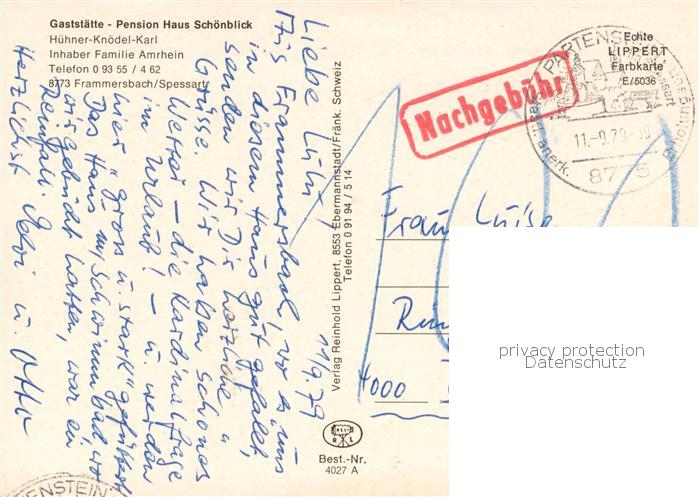 Gaststätte - Pension Haus Schönblick
Hühner-Knödel-Karl
Inhaber Familie Amrhein
Telefon 0 93 55 / 4 62
8773 Frammersbach/Spessart
Liebe Lulu,
11.9.79
Aus Frammersbach, wo es uns
in diesem Haus gut gefällt,
senden wir Dir herzliche
Grüsse. Wir haben schönes
Wetter - die Kardinalfrage
im Urlaub! - u. werden
hier "gross u. stark" gefüttert.
Das Haus m/Schwimmbad, wo
wir gebucht hatten, war ein
Reinfall.
Herzlichst u. Otto
Verlag Reinhold Lippert, 8553 Ebermannstadt/Fränk. Schweiz
Telefon 0 91 94 / 5 14
Nachgebühr
PARTENSTEIN
11.-9.79-10
8775
Echte
LIPPERT
Farbkarte
E/5036
Frau Luise
4000
privacy protection
Datenschutz
Best.-Nr.
4027 A
ENSTEIN